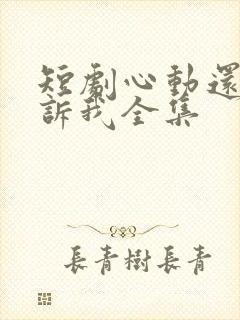 短劇心動還
訴我全集
長青樹長青